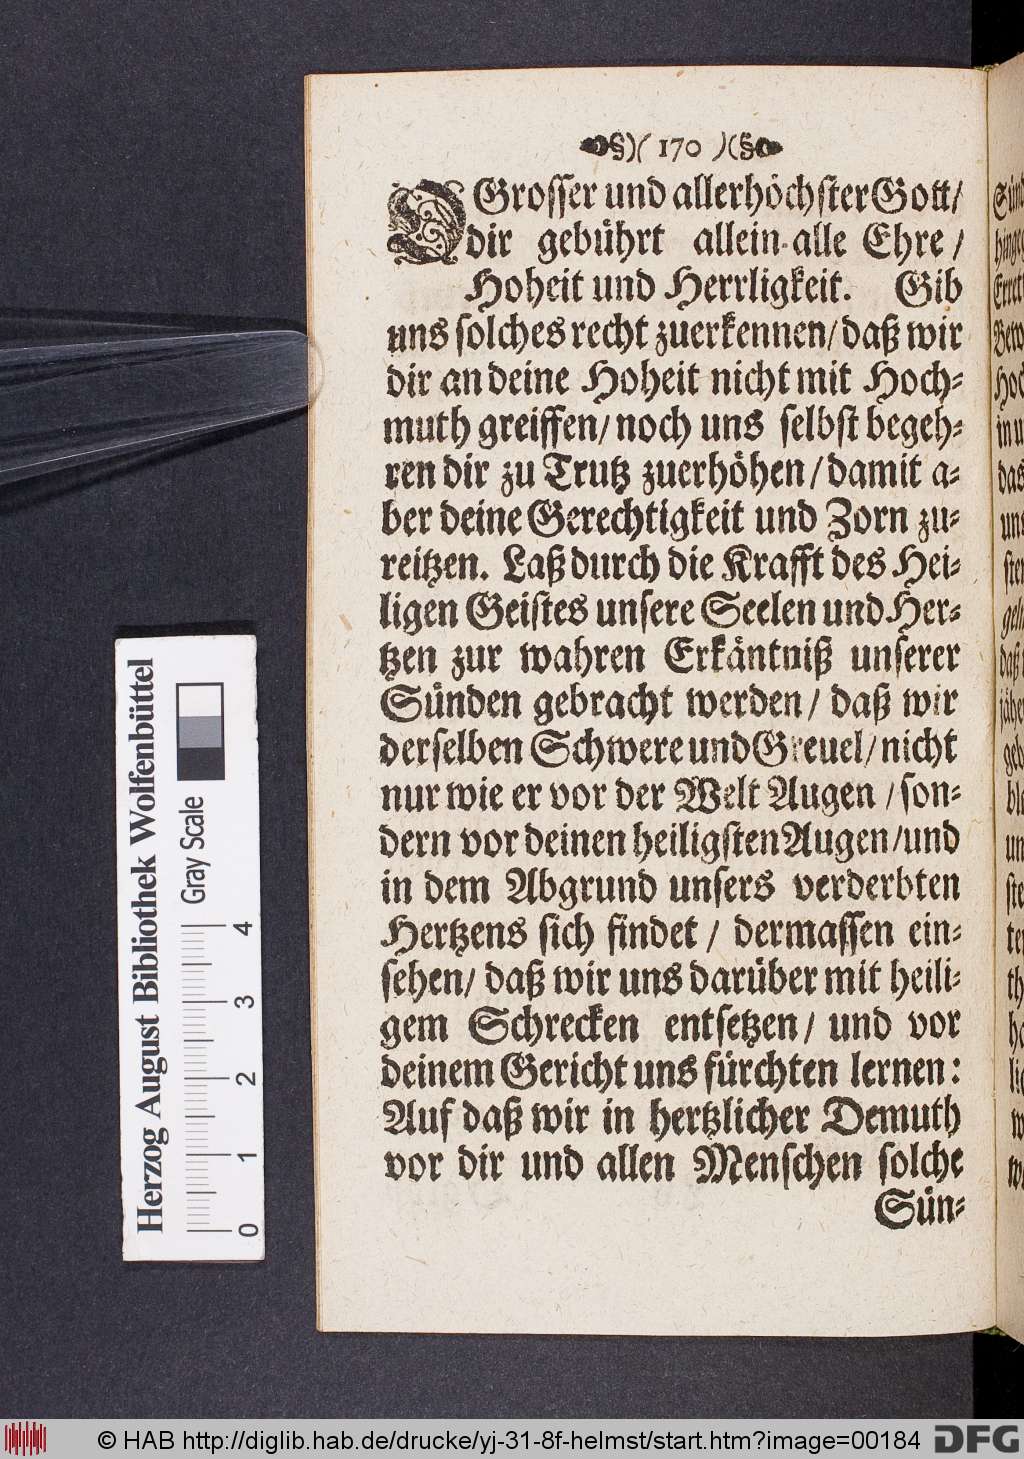 §)( 170 )(§
O Grosser und allerhöchster Gott/
dir gebührt allein alle Ehre/
Hoheit und Herrligkeit. Gib
uns solches recht zuerkennen/ daß wir
dir an deine Hoheit nicht mit Hoch-
muth greiffen/ noch uns selbst begeh-
ren dir zu Trutz zuerhöhen/ damit a-
ber deine Gerechtigkeit und Zorn zu-
reitzen. Laß durch die Krafft des Hei-
ligen Geistes unsere Seelen und Her-
tzen zur wahren Erkäntniß unserer
Sünden gebracht werden/ daß wir
derselben Schwere und Greuel/ nicht
nur wie er vor der Welt Augen/ son-
dern vor deinen heiligsten Augen/ und
in dem Abgrund unsers verderbten
Hertzens sich findet/ dermassen ein-
sehen/ daß wir uns darüber mit heili-
gem Schrecken entsetzen/ und vor
deinem Gericht uns fürchten lernen:
Auf daß wir in hertzlicher Demuth
vor dir und allen Menschen solche
Sün-
Herzog August Bibliothek Wolfenbüttel
Gray Scale
0 1 2 3 4
© HAB http://diglib.hab.de/drucke/yj-31-8f-helmst/start.htm?image=00184
DFG